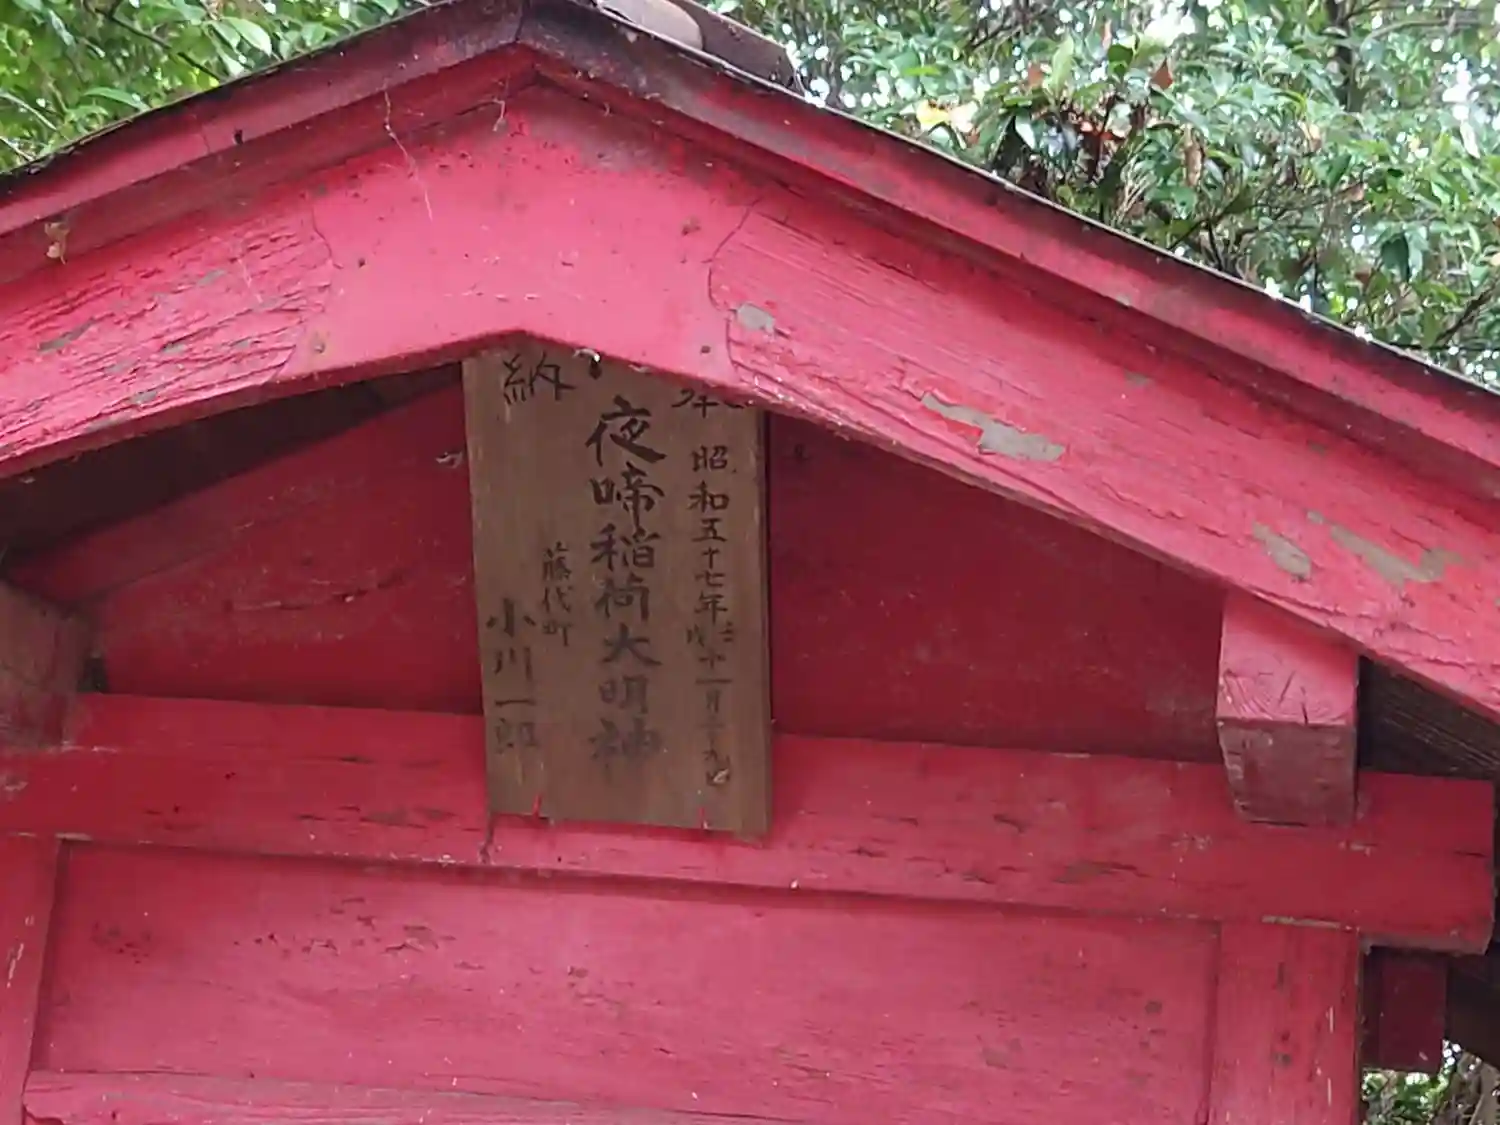 奉
昭和五十七年
十一月二十九日
夜啼稲荷大明神
藤代町
小川一郎
納